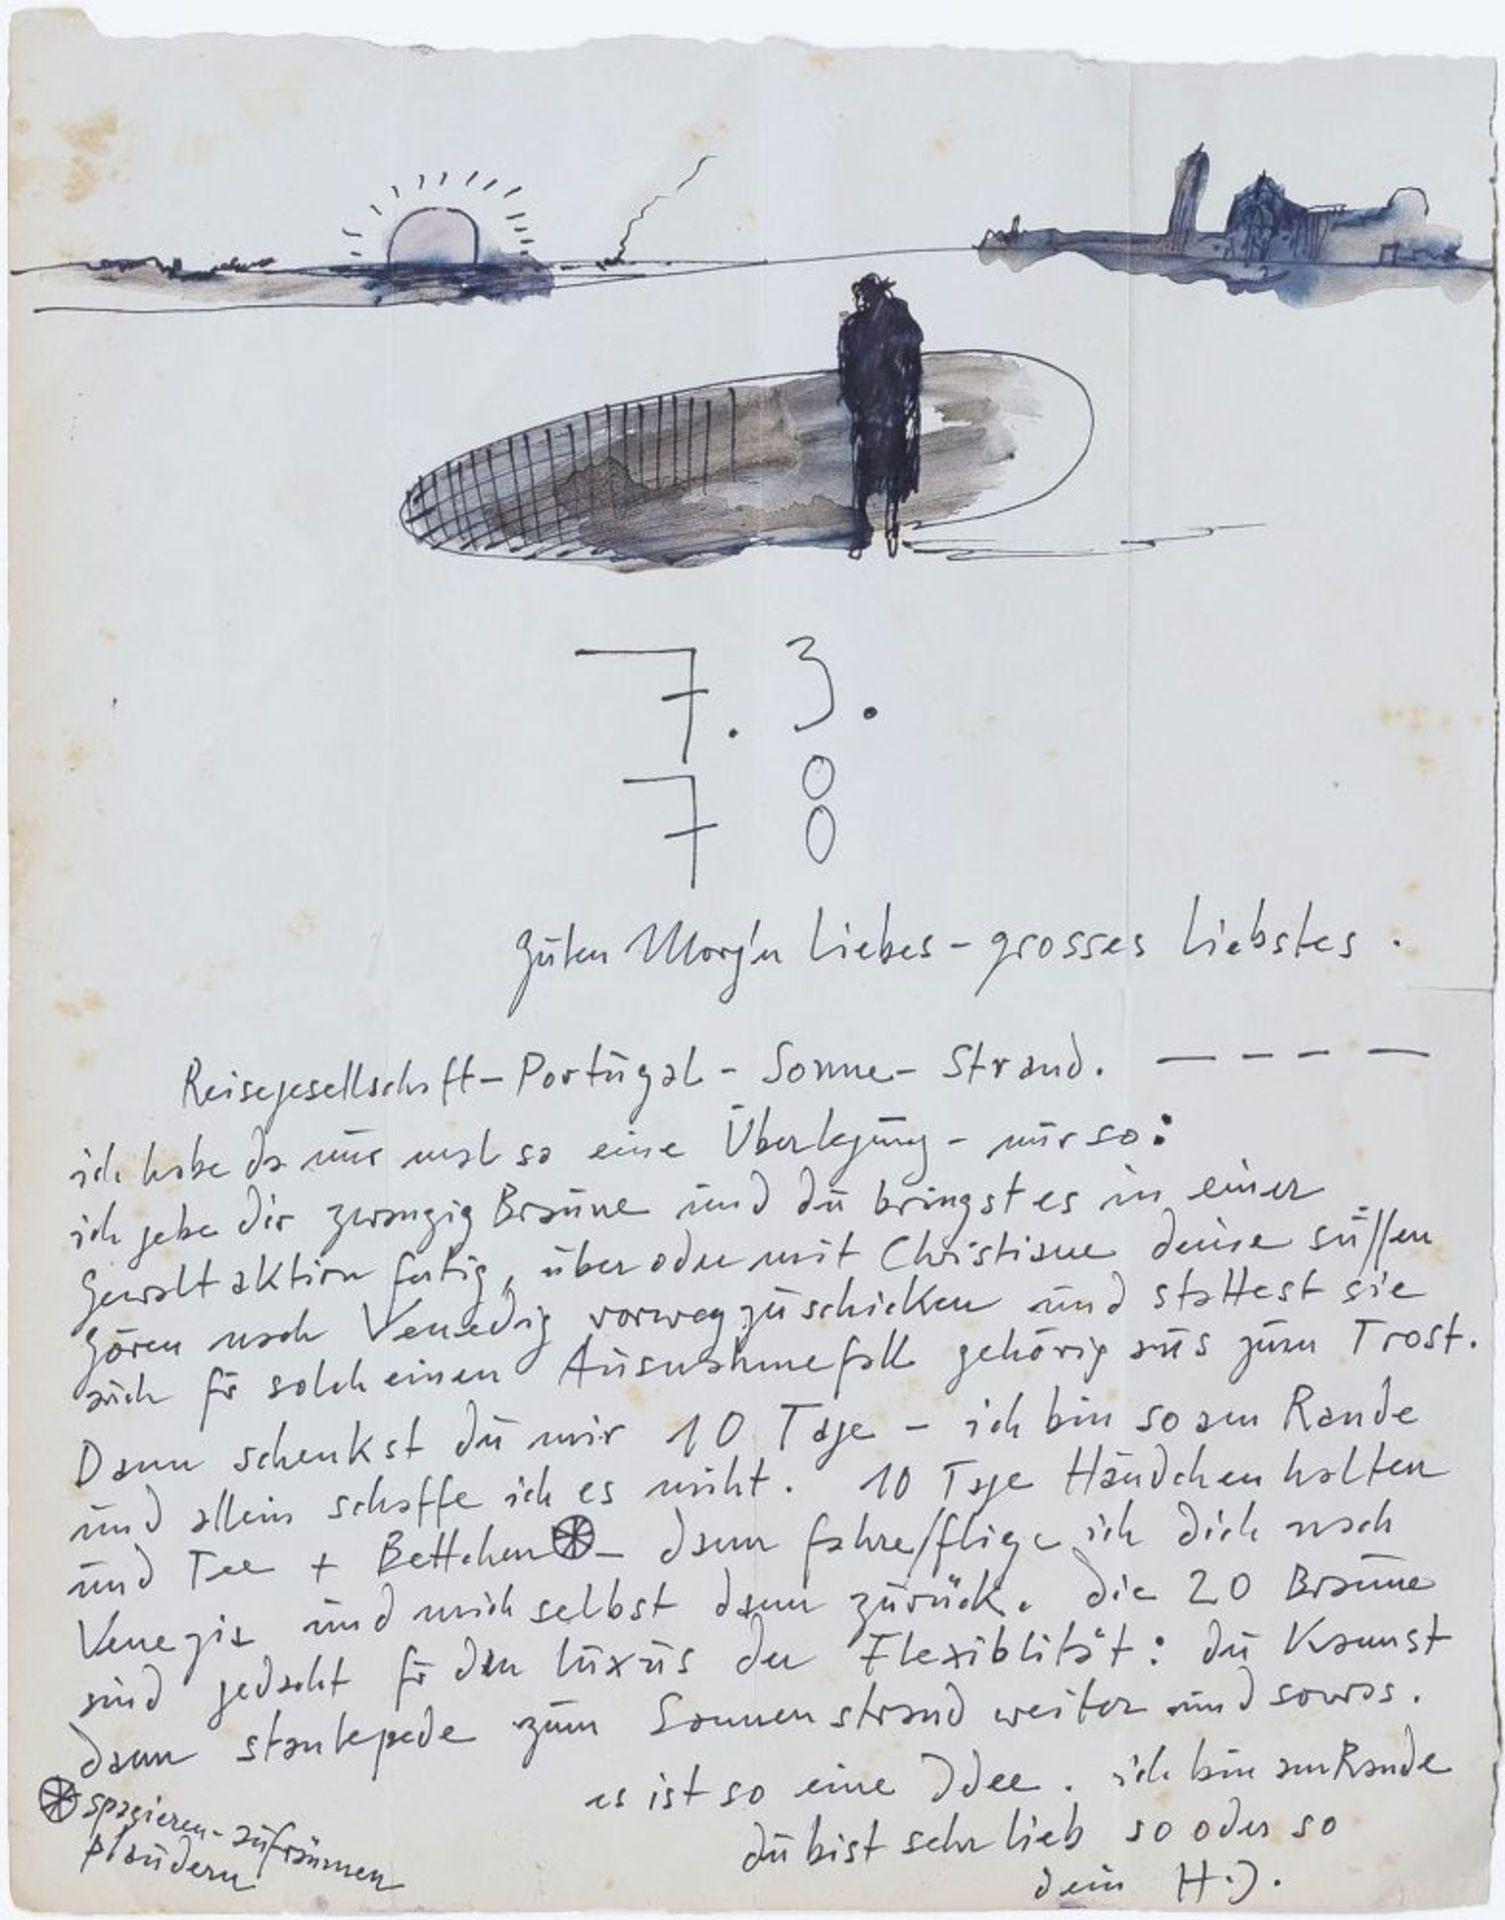 7. 3.
7 8
Guten Morg'n Liebes - grosses Liebstes.
Reisegesellschaft - Portugal - Sonne - Strand. — — — —
ich habe da nur mal so eine Überlegung - nur so:
ich gebe dir zwanzig Braune und du bringst es in einer
Gewaltaktion fertig, über oder mit Christiane deine süßen
Gören nach Venedig vorwegzuschicken und stattest sie
auch für solch einen Ausnahmefall gehörig aus zum Trost.
Dann schenkst du mir 10 Tage - ich bin so am Rande
und allein schaffe ich es nicht. 10 Tage Händchen halten
und Tee + Bettchen ⊛ - dann fahre/fliege ich dich nach
Venezia und mich selbst dann zurück. die 20 Braune
sind gedacht für den Luxus der Flexiblität: du kannst
dann stantepede zum Sonnenstrand weiter und sowas.
es ist so eine Idee. ich bin am Rande
du bist sehr lieb so oder so
dein H.J.
⊛ spazieren - aufräumen
plaudern